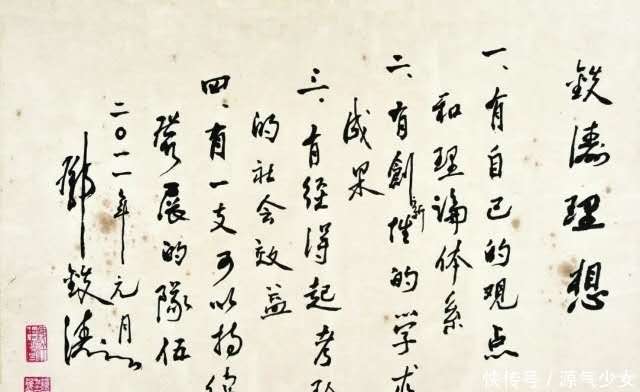 鉄濤理想
一、有自己的观点
和理論体系
二、有創新性的学
成果
三、有经得起考
的社会效益
四、有一支可以持
發展的隊伍
二〇一一年元月
鄧鉄濤
快传号 / 源气少女